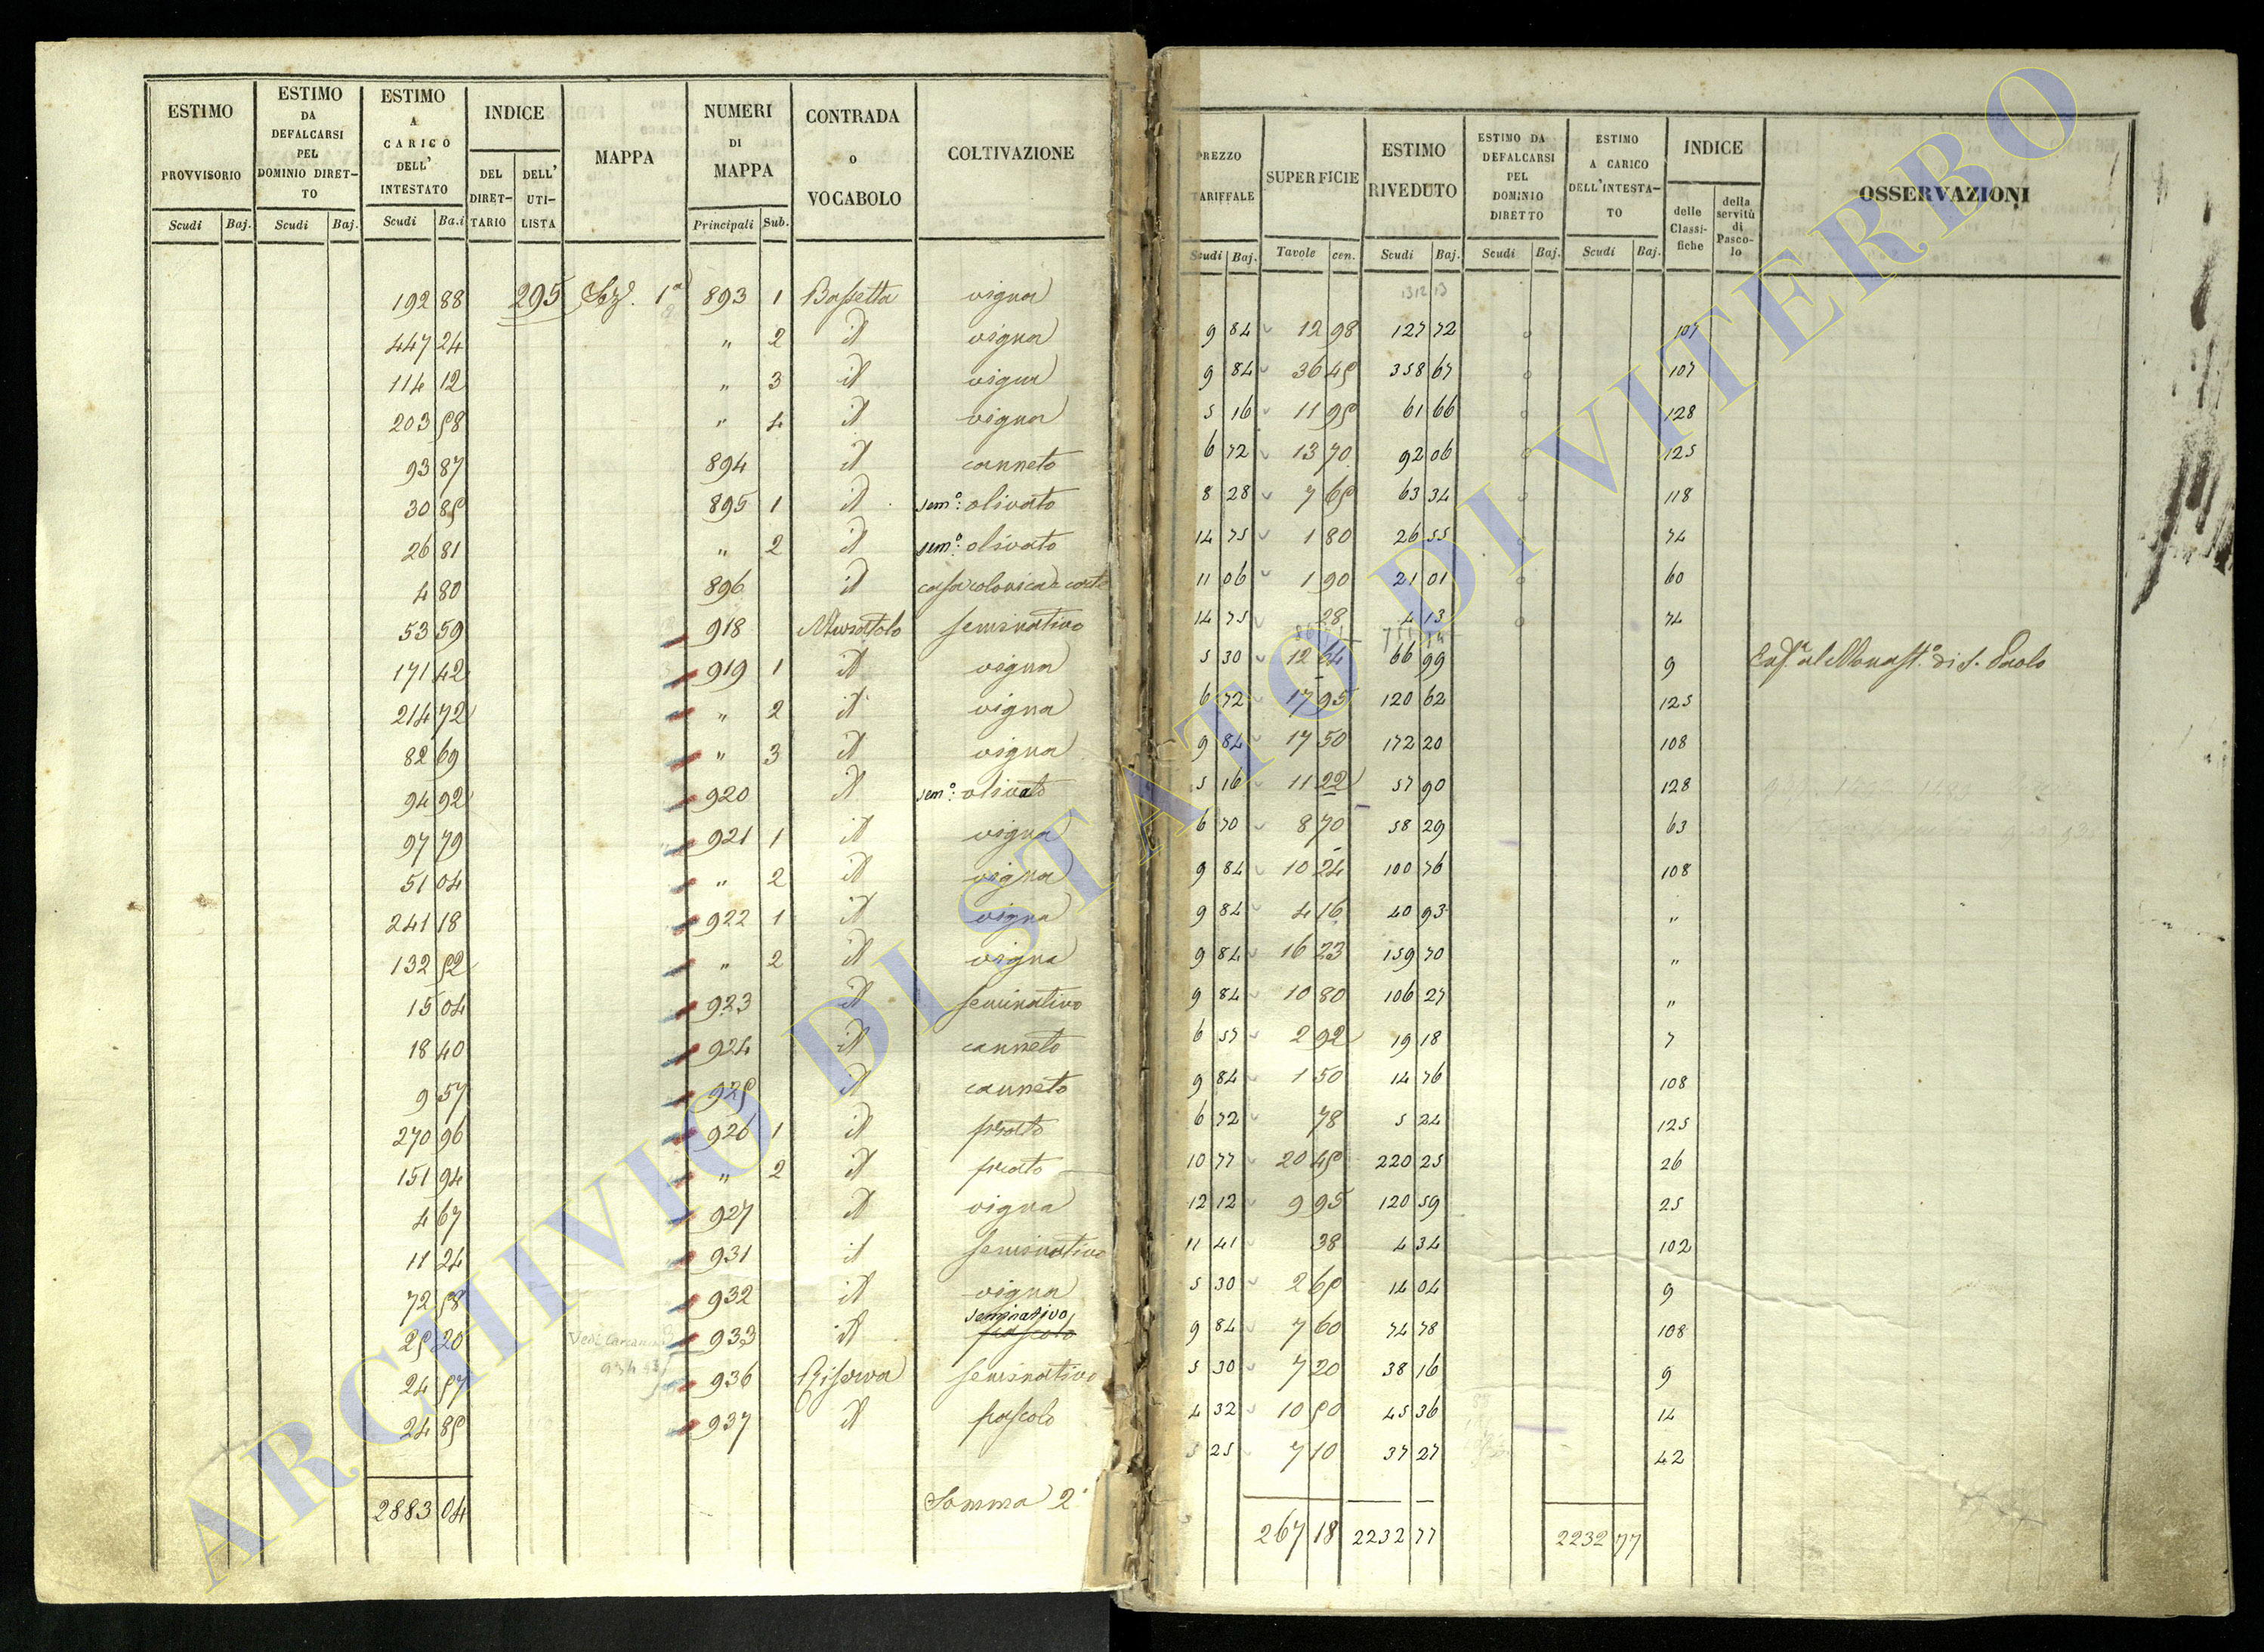 ESTIMO PROVVISORIO | ESTIMO DA DEFALCARSI PEL DOMINIO DIRETTO | ESTIMO A CARICO DELL' INTESTATO | INDICE DEL DIRETTARIO | DELL' UTILISTA | MAPPA | NUMERI DI MAPPA | CONTRADA O VOCABOLO | COLTIVAZIONE
Scudi Baj. | Scudi Baj. | Scudi Ba.i | Principali Sub.
192 88 295 Sez. 1ª 893 1 Bassetta vigna
447 24 " 2 id vigna
114 12 " 3 id vigna
203 58 " 4 id vigna
93 87 894 id canneto
30 85 895 1 id sem.º olivato
26 81 " 2 id sem.º olivato
4 80 896 id casa colonica e corte
53 59 918 Muratolo seminativo
171 42 919 1 id vigna
214 72 " 2 id vigna
82 69 " 3 id vigna
94 92 920 id sem.º olivato
97 79 921 1 id vigna
51 04 " 2 id vigna
241 18 922 1 id vigna
132 52 " 2 id vigna
15 04 923 id seminativo
18 40 924 id canneto
9 57 925 id canneto
270 96 926 1 id prato
151 94 " 2 id prato
4 67 927 id vigna
11 24 931 id seminativo
72 58 932 id vigna
seminativo
25 20 Vedi 933 id pascolo
24 57 936 Riserva seminativo
24 85 937 id pascolo
2883 04 Somma 2ª
PREZZO TARIFFALE | SUPERFICIE | ESTIMO RIVEDUTO | ESTIMO DA DEFALCARSI PEL DOMINIO DIRETTO | ESTIMO A CARICO DELL'INTESTATO | INDICE delle Classifiche | della servitù di Pascolo | OSSERVAZIONI
Scudi Baj. | Tavole cen. | Scudi Baj. | Scudi Baj. | Scudi Baj.
9 84 12 98 127 72 107
9 84 36 45 358 67 107
5 16 11 95 61 66 128
6 72 13 70 92 06 125
8 28 7 65 63 34 118
14 75 1 80 26 55 74
11 06 1 90 21 01 60
14 75 28 4 13 74
5 30 12 64 66 99 9 Enf.ª al Monast.º di S. Paolo
6 72 17 95 120 62 125
9 84 17 50 172 20 108
5 16 11 22 57 90 128
6 70 8 70 58 29 63
9 84 10 24 100 76 108
9 84 4 16 40 93 "
9 84 16 23 159 70 "
9 84 10 80 106 27 "
6 57 2 92 19 18 7
9 84 1 50 14 76 108
6 72 78 5 24 125
10 77 20 45 220 25 26
12 12 9 95 120 59 25
11 41 38 4 34 102
5 30 2 65 14 04 9
9 84 7 60 74 78 108
5 30 7 20 38 16 9
4 32 10 50 45 36 14
5 25 7 10 37 27 42
267 18 2232 77 2232 77
ARCHIVIO DI STATO DI VITERBO